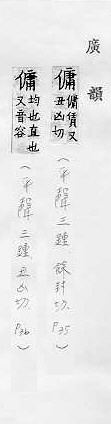 廣韻
傭 傭賃又丑凶切
（平聲三鍾 餘封切. P35）
傭 均也直也又音容
（平聲三鍾 丑凶切. P36）